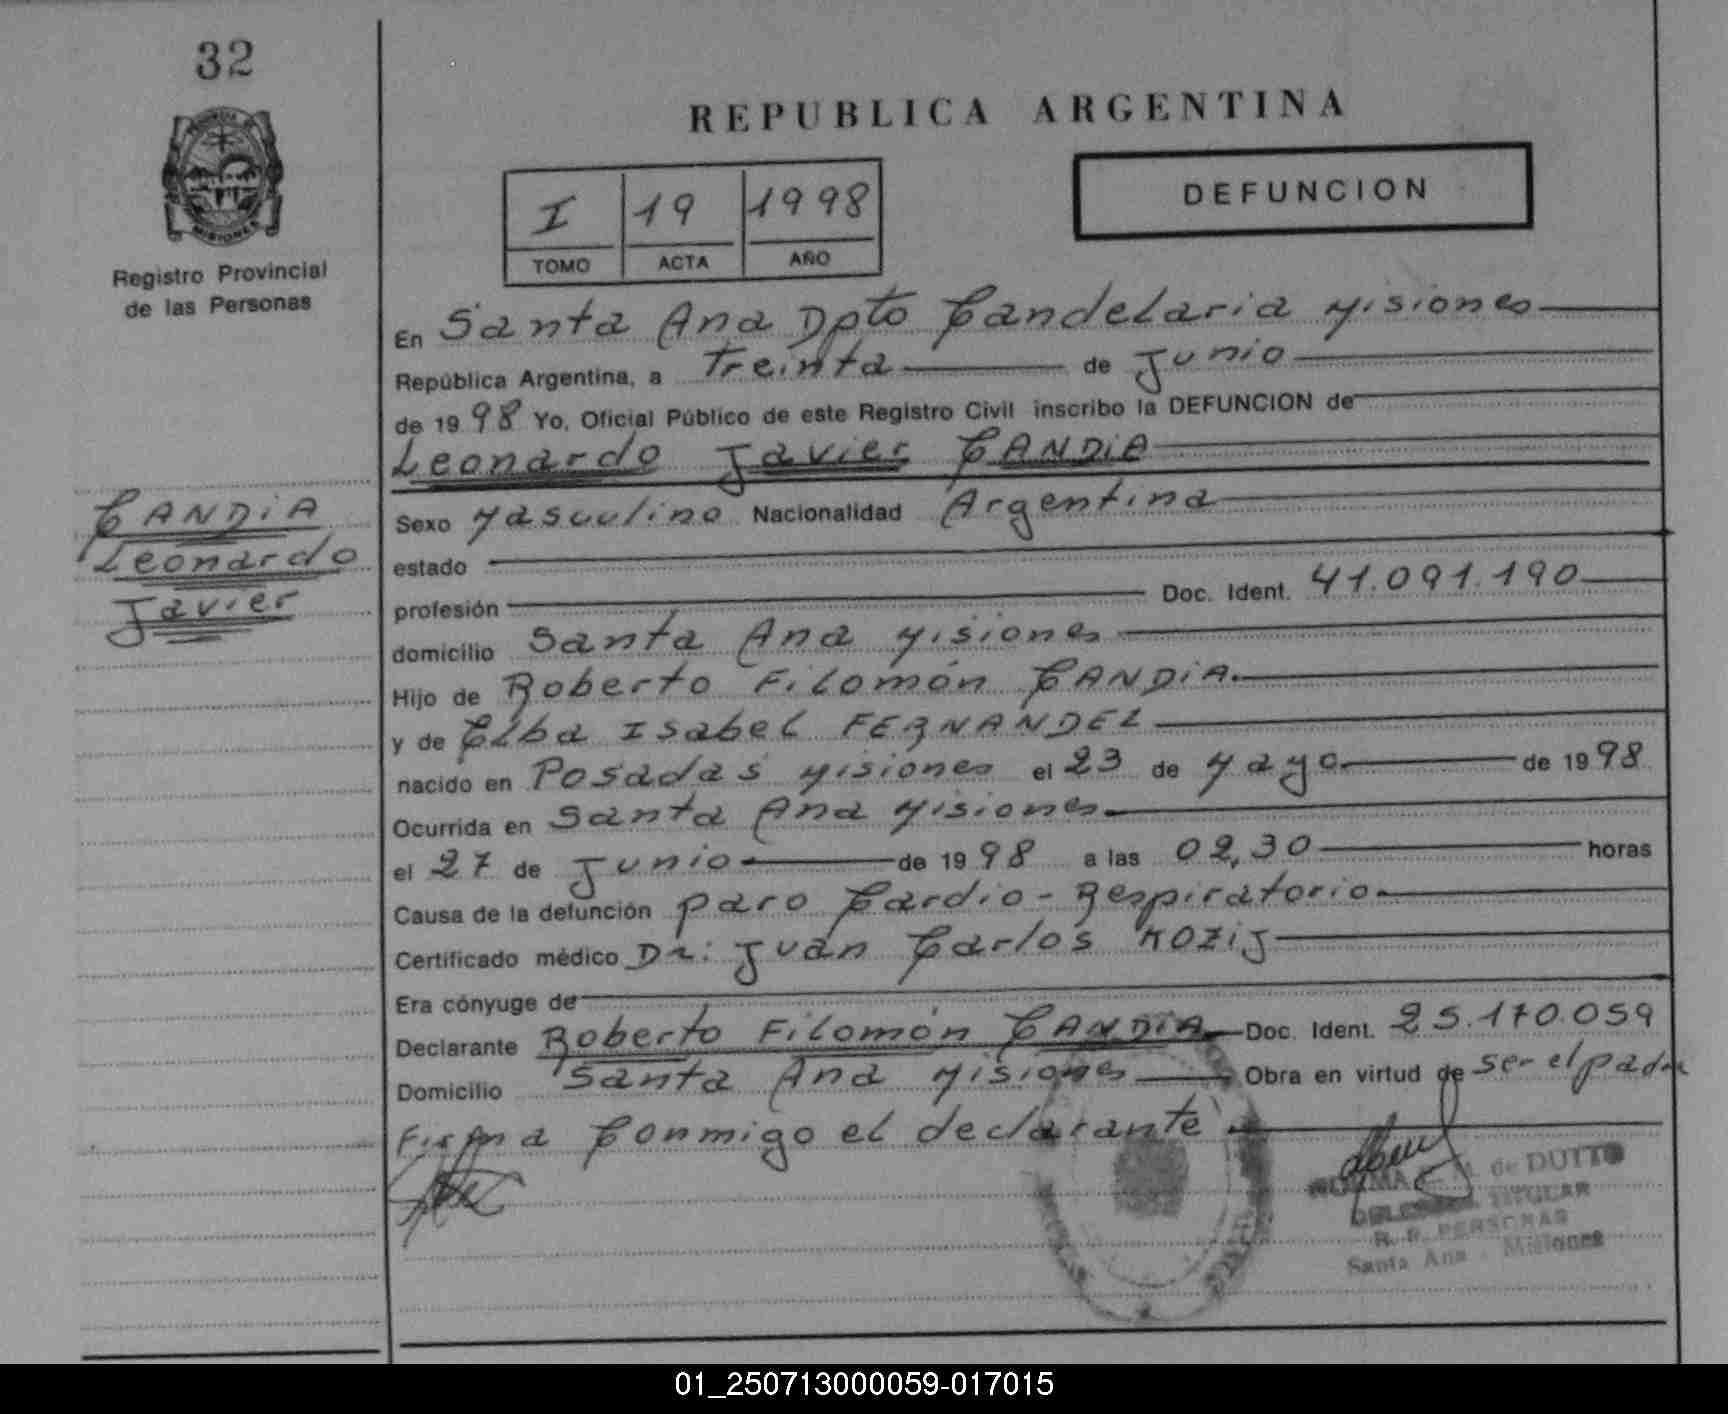 32
REPUBLICA ARGENTINA
I 19 1998
TOMO ACTA AÑO
DEFUNCION
MISIONES
Registro Provincial
de las Personas
En Santa Ana Dpto Candelaria Misiones
República Argentina, a Treinta de Junio
de 1998 Yo, Oficial Público de este Registro Civil inscribo la DEFUNCION de
Leonardo Javier CANDiA
CANDiA
Leonardo
Javier
Sexo Masculino Nacionalidad Argentina
estado
profesión Doc. Ident. 41.091.190
domicilio Santa Ana Misiones
Hijo de Roberto Filomón CANDiA.
y de Elba Isabel FERNANDEZ
nacido en Posadas Misiones el 23 de Mayo de 1998
Ocurrida en Santa Ana Misiones
el 27 de Junio de 1998 a las 02,30 horas
Causa de la defunción paro Cardio-Respiratorio
Certificado médico Dr: Juan Carlos KOZiJ
Era cónyuge de
Declarante Roberto Filomón CANDiA Doc. Ident. 25.170.059
Domicilio Santa Ana Misiones Obra en virtud de ser el padre
Firma Conmigo el declarante
NORMA de DUTTO
TITULAR
R. P. PERSONAS
Santa Ana - Misiones
01_250713000059-017015